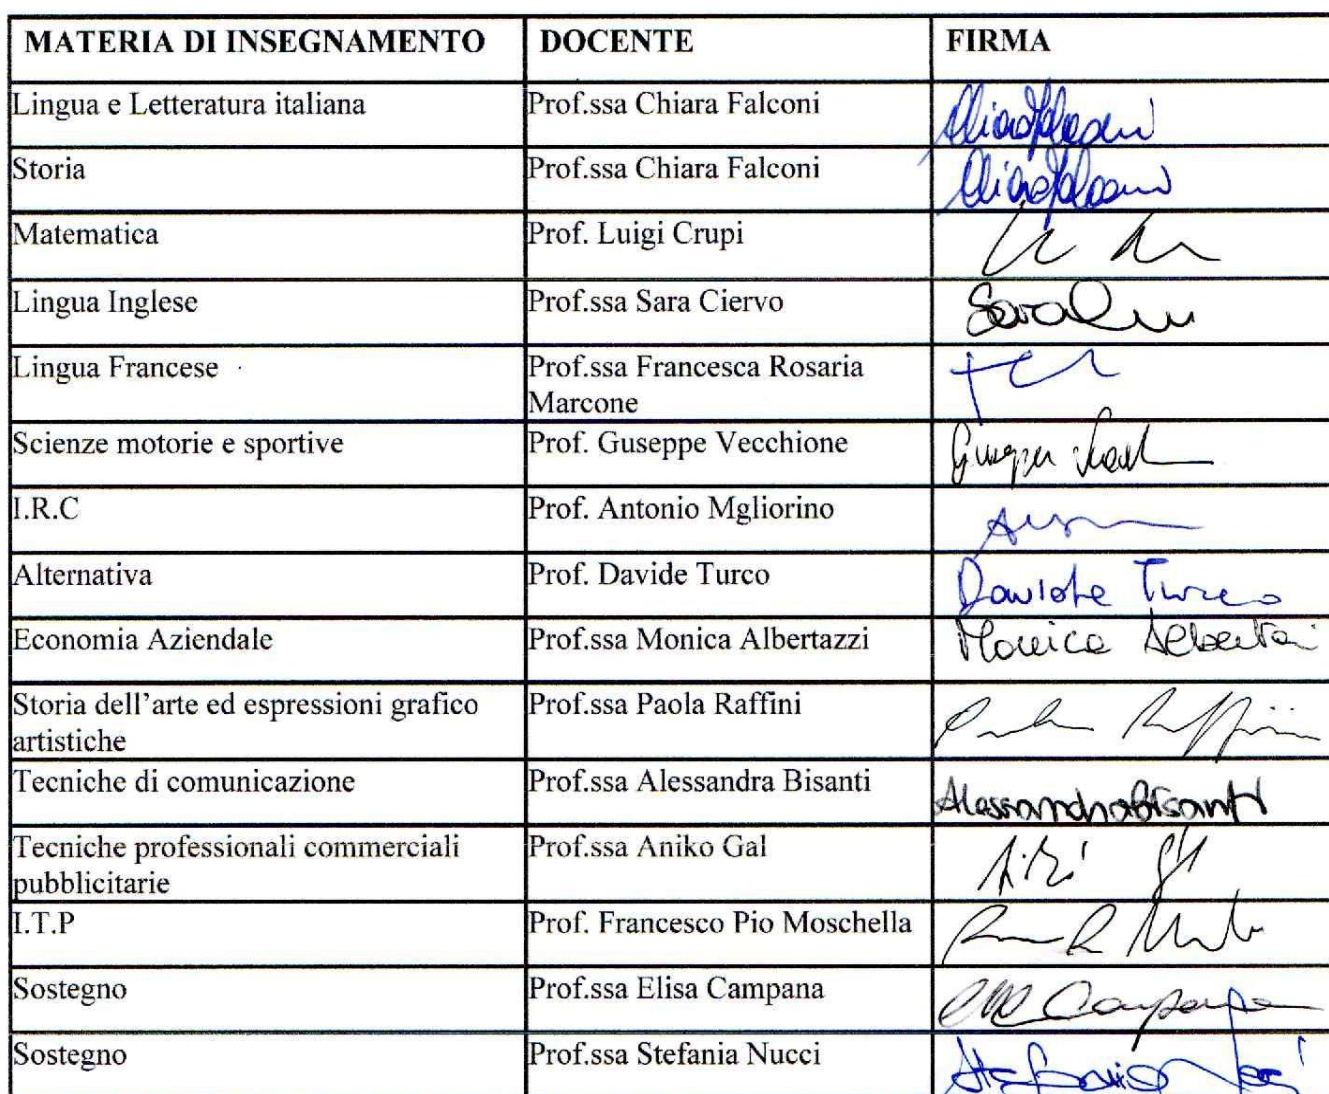 MATERIA DI INSEGNAMENTO DOCENTE FIRMA
Lingua e Letteratura italiana Prof.ssa Chiara Falconi Chiara Falconi
Storia Prof.ssa Chiara Falconi Chiara Falconi
Matematica Prof. Luigi Crupi
Lingua Inglese Prof.ssa Sara Ciervo Sara
Lingua Francese Prof.ssa Francesca Rosaria
Marcone
Scienze motorie e sportive Prof. Guseppe Vecchione Giuseppe
I.R.C Prof. Antonio Mgliorino
Alternativa Prof. Davide Turco Davide Turco
Economia Aziendale Prof.ssa Monica Albertazzi Monica
Storia dell'arte ed espressioni grafico Prof.ssa Paola Raffini Raffini
artistiche
Tecniche di comunicazione Prof.ssa Alessandra Bisanti Alessandra Bisanti
Tecniche professionali commerciali Prof.ssa Aniko Gal
pubblicitarie
I.T.P Prof. Francesco Pio Moschella
Sostegno Prof.ssa Elisa Campana Campana
Sostegno Prof.ssa Stefania Nucci Stefania